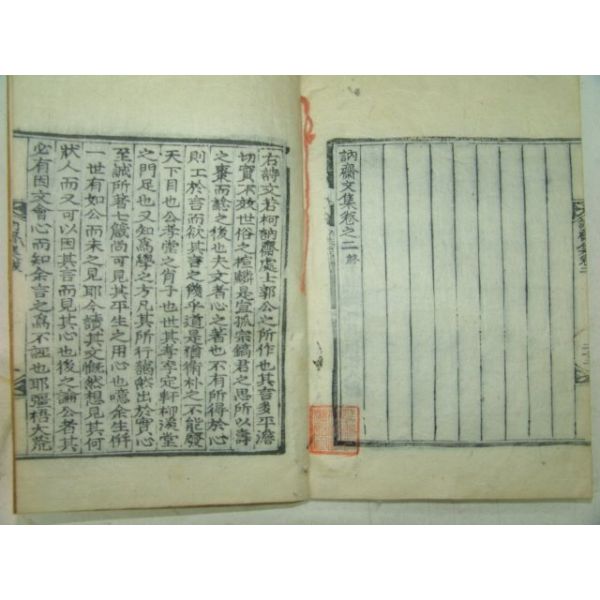 訥齋文集卷之二 終
右詩文若柯訥齋處士郭公之所作也其言多平澹
切實不效世俗之楦麟是宣孤宗鎬君之思所以壽
之棗而諗之後也夫文者心之著也不有所得於心
則工於言而欲其言之幾乎道是猶術朴之不能發
天下目也公孝崇之肖子也世其孝李定軒柳溪堂
之門足也又知為學之方凡其所行謁然出於實心
至誠所著七箴尚可見其平生之用心也噫余生倂
一世有如公而未之見耶今讀其文慨然想見其何
狀人而又可以因其言而見其心也後之論公者其
必有因文會心而知余言之為不誣也耶彊梧大荒